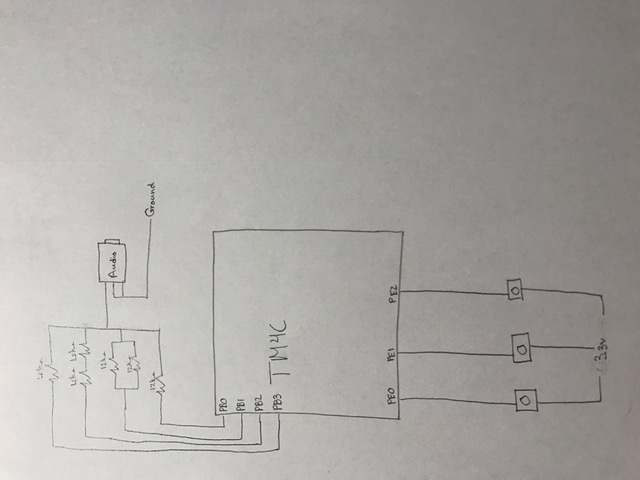 12kΩ
12kΩ
12kΩ
12kΩ
Audio
Ground
PB0
PB1
PB2
PB3
TM4C
PE0 PE1 PE2
3.3v